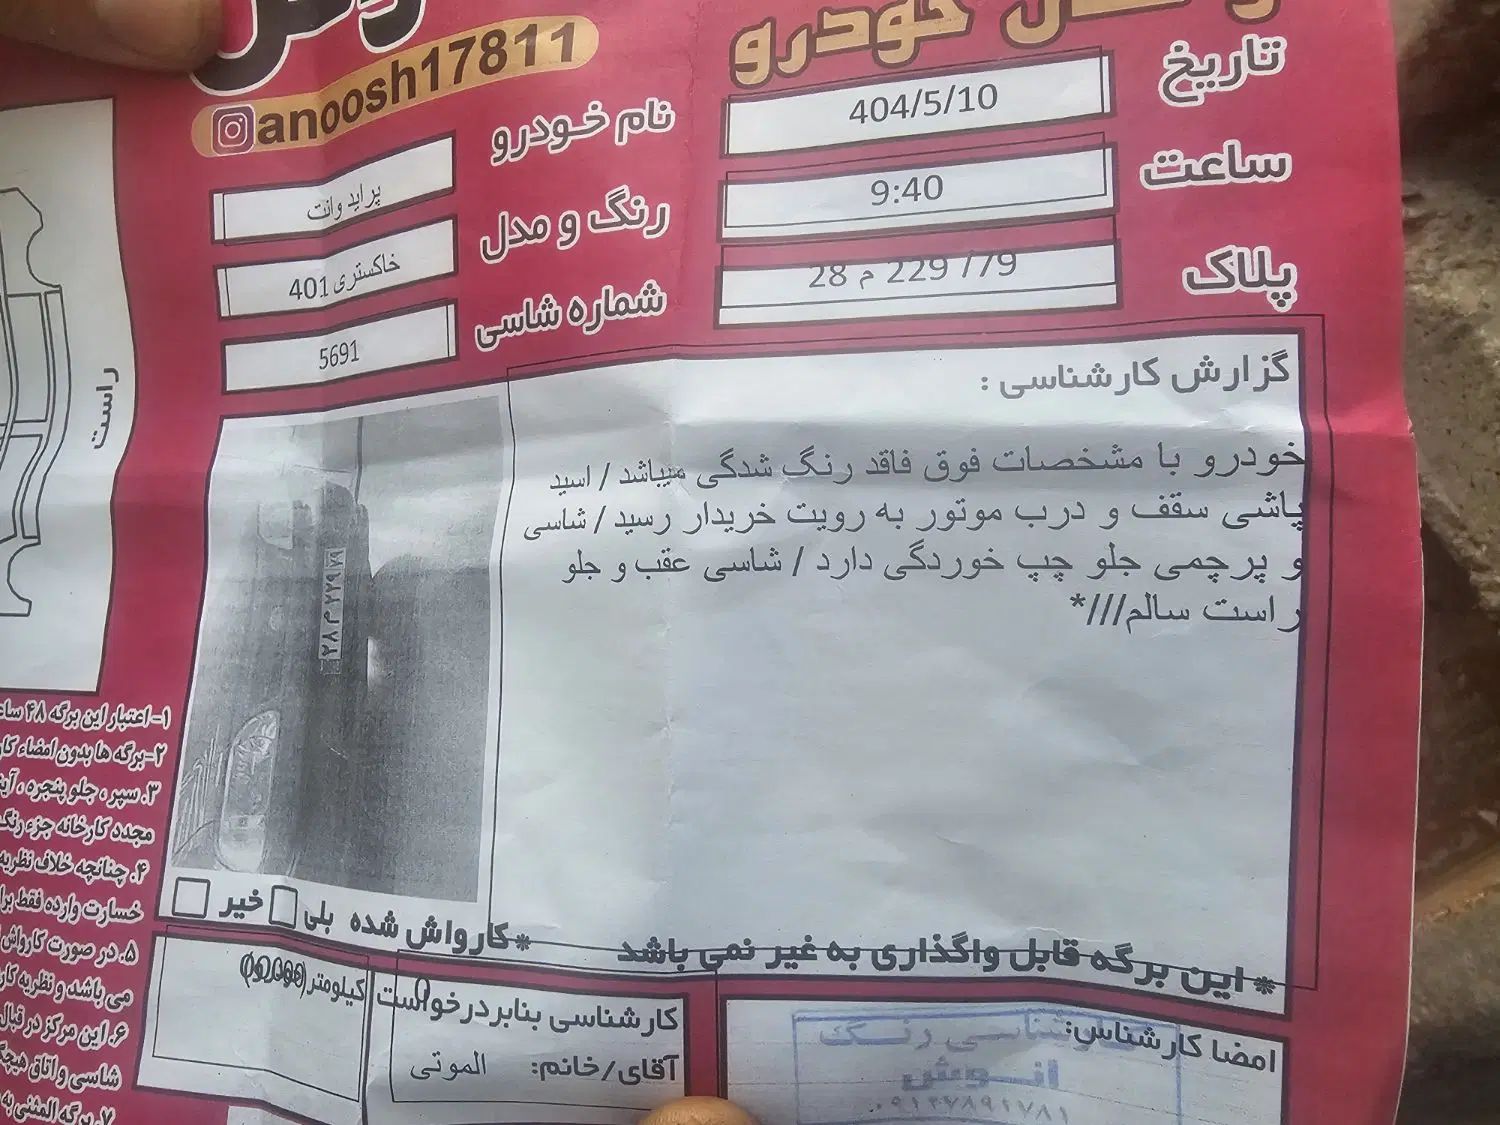 خودرو
anoosh17811
تاریخ
404/5/10
ساعت
9:40
پلاک
28 م 229 /79
نام خودرو
پراید وانت
رنگ و مدل
خاکستری 401
شماره شاسی
5691
راست
گزارش کارشناسی :
خودرو با مشخصات فوق فاقد رنگ شدگی میباشد / اسید
پاشی سقف و درب موتور به رویت خریدار رسید / شاسی
و پرچمی جلو چپ خوردگی دارد / شاسی عقب و جلو
راست سالم///*
۲۸ م ۲۲۹ ۷۹
* این برگه قابل واگذاری به غیر نمی باشد
*کارواش شده بلی خیر
امضا کارشناس:
کارشناسی رنگ
انوش
کارشناسی بنابردرخواست
آقای/خانم: الموتی
کیلومتر
۱- اعتبار این برگه ۴۸
۲-برگه ها بدون امضاء
۳. سپر ، جلو پنجره ،
مجدد کارخانه جزء
۴. چنانچه خلاف نظریه
خسارت وارده فقط
۵. در صورت کارواش
می باشد و نظریه
۶. این مرکز در قبال
شاسی و اتاق
۷. برگه المثنی